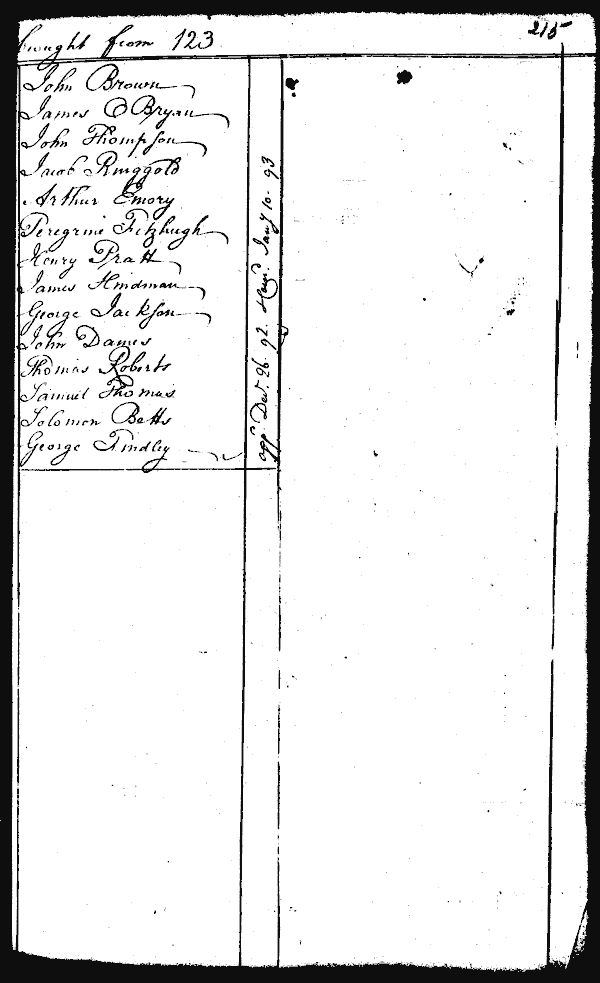 brought from 123
215
John Brown
James O Bryan
John Thompson
Jacob Ringgold
Arthur Emory
Peregrine Fitzhugh
Henry Pratt
James Hindman
George Jackson
John Dames
Thomas Roberts
Samuel Thomas
Solomon Betts
George Findley
app. Decr. 26. 92. Jany 10. 93